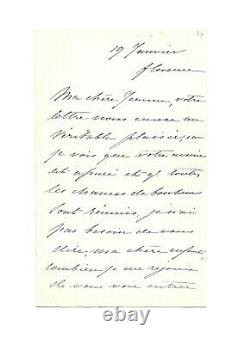 19 Janvier
florence
Ma chère Jeanne, votre
lettre nous cause un
véritable plaisir, car
je vois que votre avenir
est assuré et q toutes
les chances de bonheur
sont réunies, je n'ai
pas besoin de vous
dire, ma chère enfant,
combien je me réjouis
de vous voir entrer
© thewritingoftime.com